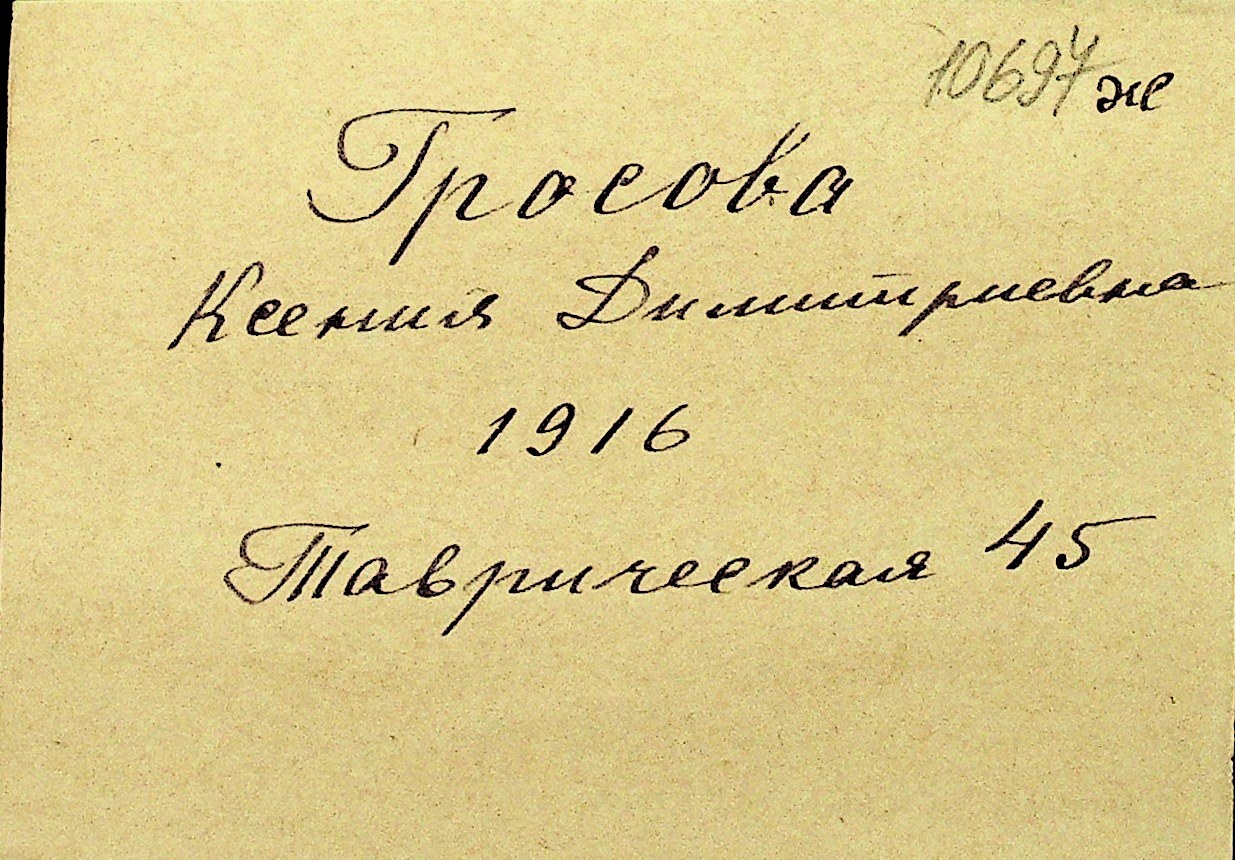 10697 ж
Гросова
Ксения Димитриевна
1916
Таврическая 45